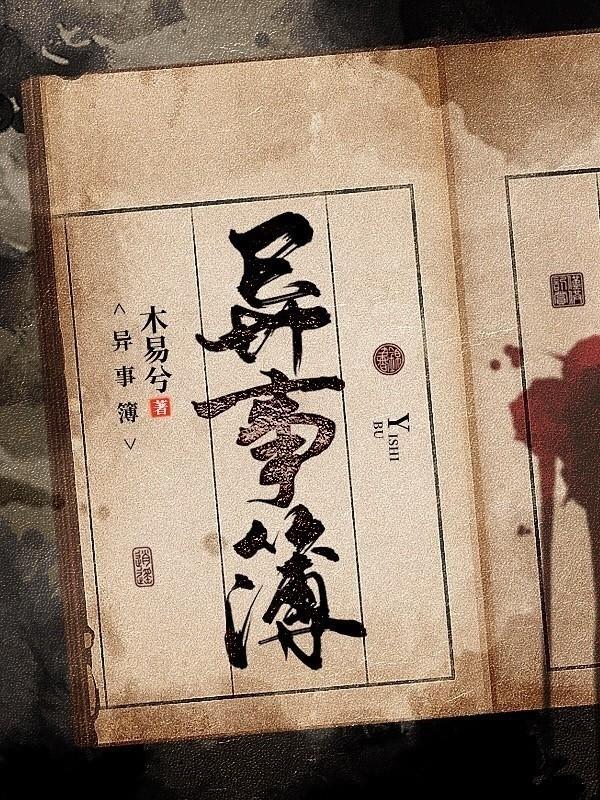 异事簿
木易兮 著
〈异事簿〉
YISHI
BU